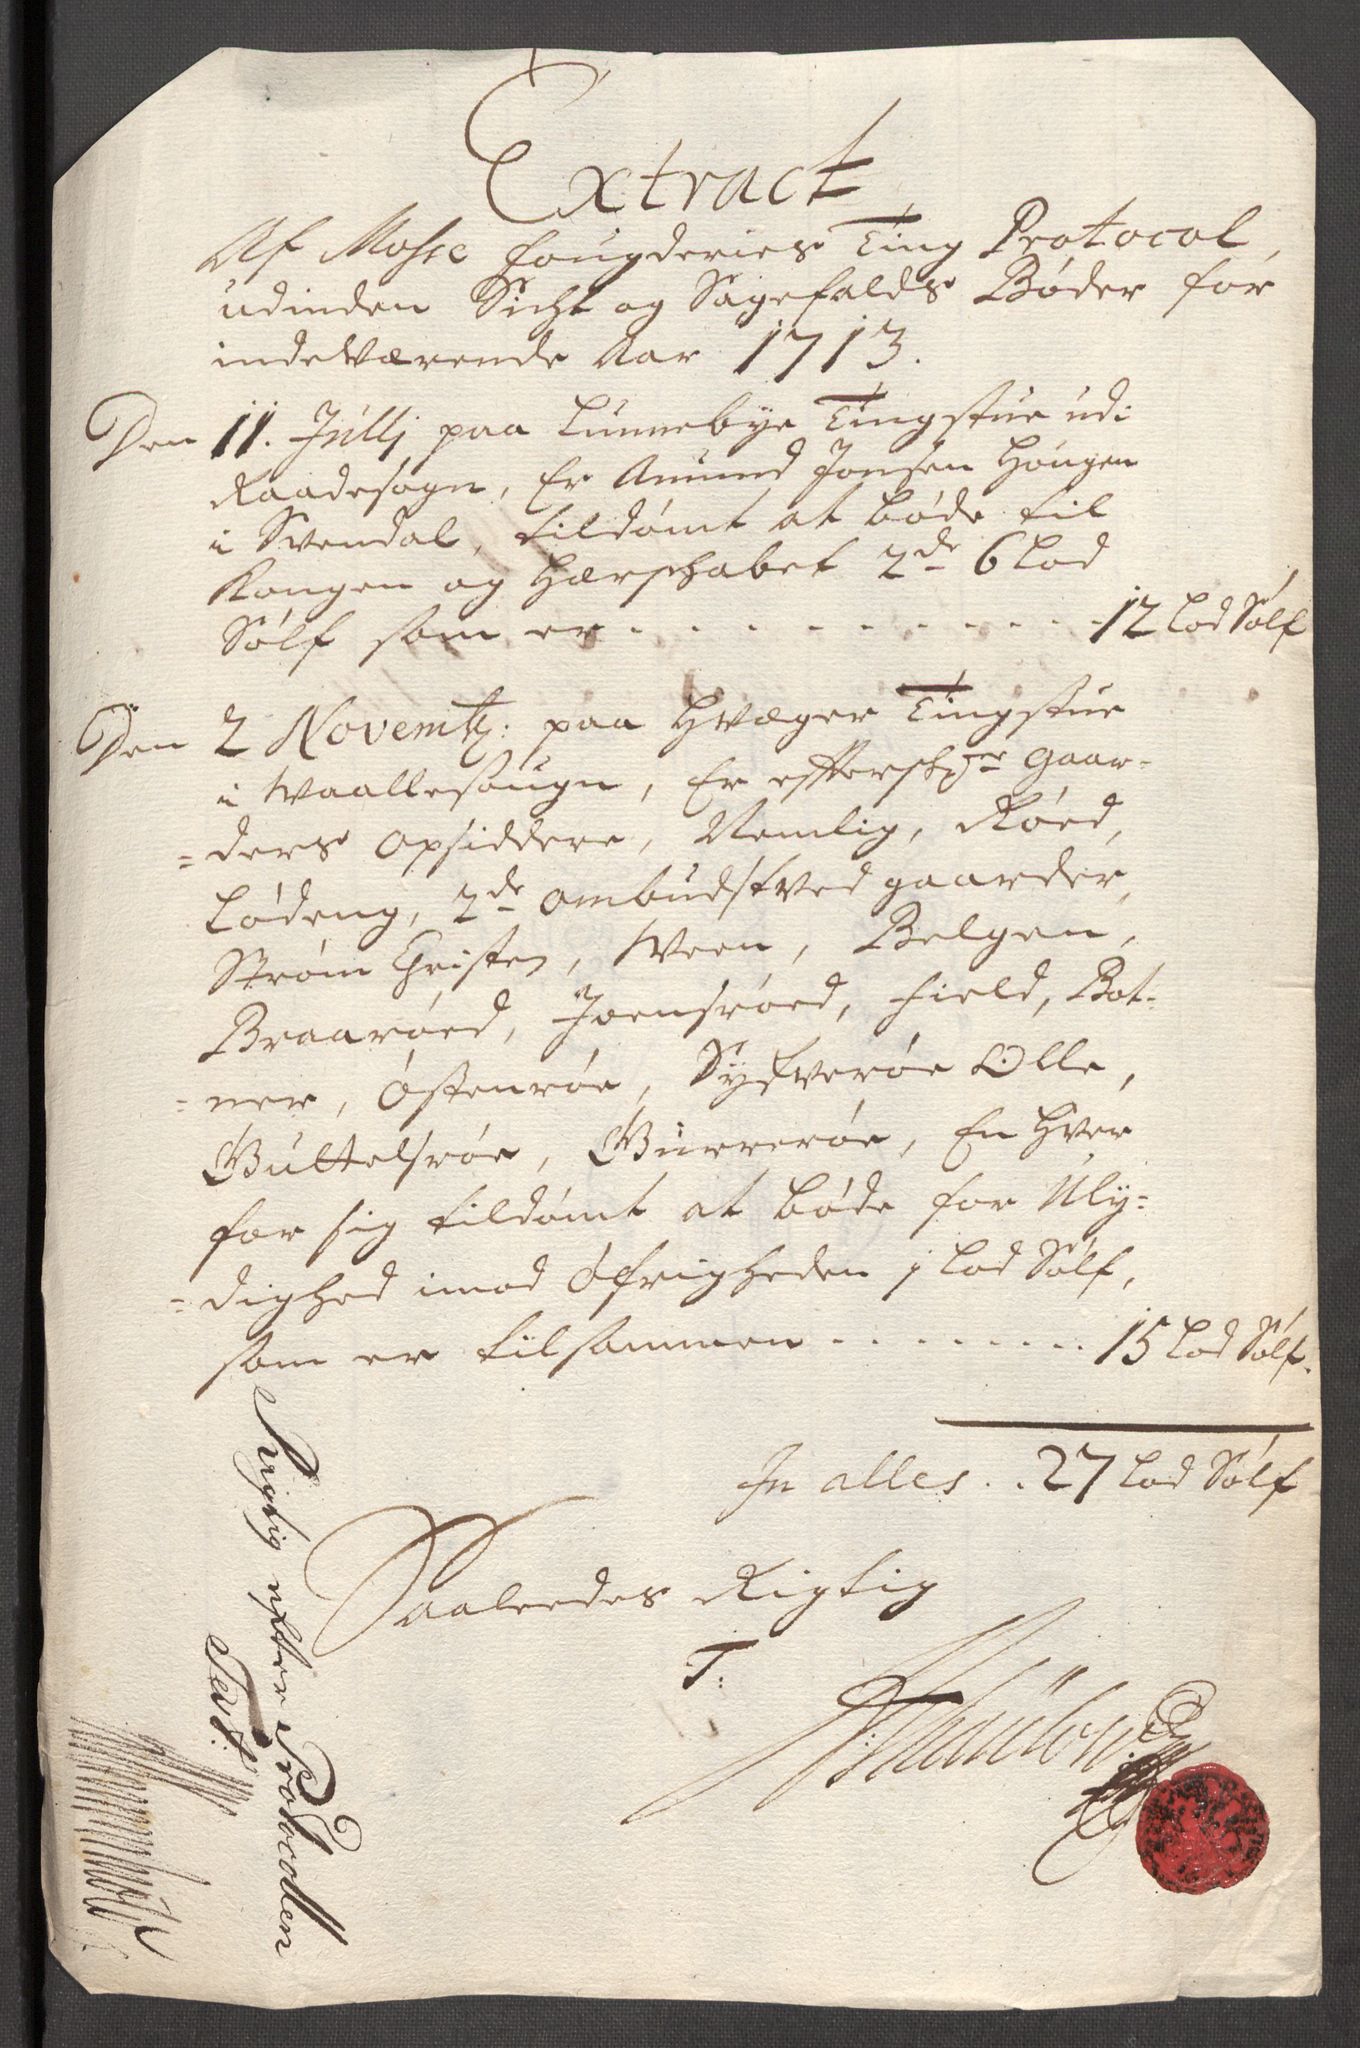 Extract
Af Mosse fougderies Ting Protocol,
udinden Sicht og Sagefalds Bøder for
indeværende Aar 1713.
Den 11. Julij paa Lunnebye Tingstue udi
Raadesogn, Er Amund Jonsen Hougen
i Svendal, tildømt at bøde til
Kongen og Hersskabet 2de 6 Lod
Sølf som er . . . . . . . . . . . 12 Lod Sølf
Den 2 Novembr: paa Hvæger Tingstue
i Waallesougn, Er effterskrne gaar-
=ders opsiddere, Nemlig, Røed,
Lødeng, 2de ombudstved gaarder,
Strøm Christen, Ween, Belgen,
Braarøed, Joensrøed, Field, Bot-
=ner, Østenrøe, Syfverøe Olle,
Gultelsrøe, Gurrerøe, En hver
for sig tildømt at bøde for Uly-
=dighed imod Øfrigheden j Lod Sølf,
som er tilsammen . . . . . . . . . 15 Lod Sølf.
In alles . . 27 Lod Sølf
Saaleedes Rigtig
T:
Rigtig efter Protocollen
Test: